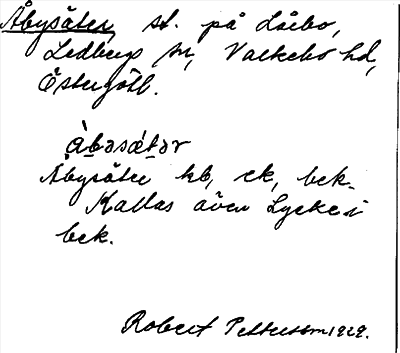 Åbysäter, st. på Låibo,
Ledbergs sn, Valkebo hd,
Östergötl.
Åbysäter kb, ek, bek.
Kallas även Lycke i
bek.
Robert Pettersson 1929.